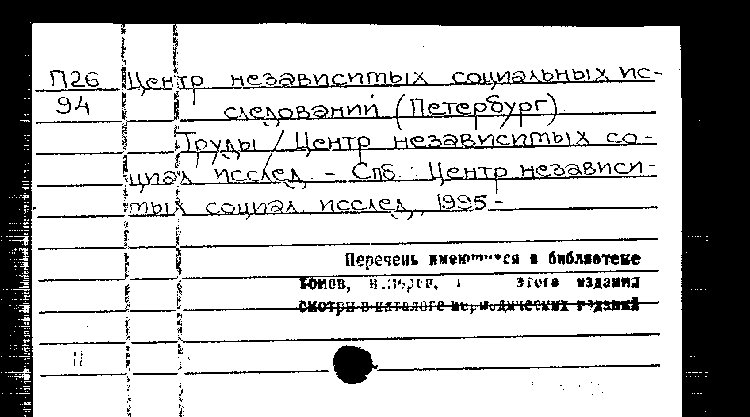 П26 Центр независимых социальных ис-
94 следований (Петербург)
Труды / Центр независимых со-
циал. исслед. - Спб.: Центр независи-
мых социал. исслед., 1995-
Перечень имеющихся в библиотеке
томов, этого издания
смотри в каталоге периодических изданий